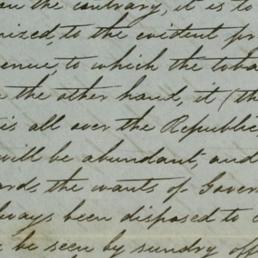 the contrary, it is to
to the evident
to which the
the other hand, it (th
is all over the Republic
will be abundant, and
the wants of Govern
been disposed to
be seen by sundry off